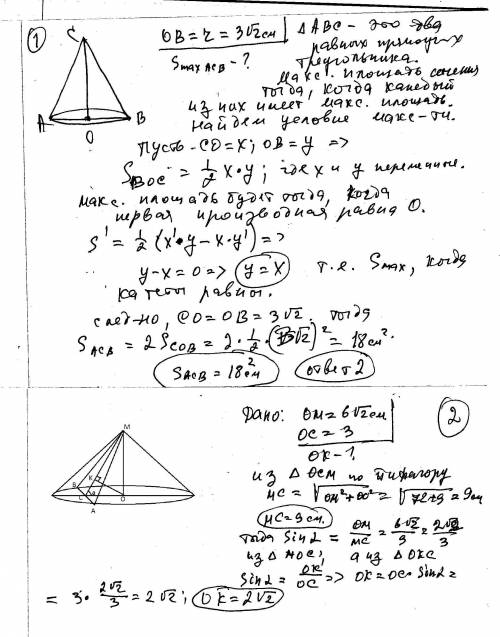 ①
C
A
O
B
OB = r = 3√2 см
Smax ACB - ?
△ ABC - это два
равных прямоуг-х
треугольника.
Макс. площадь сечения
тогда, когда каждый
из них имеет макс. площадь.
Найдем условие макс-ти.
Пусть CO = x; OB = y =>
S BOC = 1/2 x·y; где x и y переменные.
макс. площадь будет тогда, когда
первая производная равна 0.
S' = 1/2 (x'·y - x·y') =>
y-x = 0 => y = x т.е. Smax, когда
катеты равны.
след-но, CO = OB = 3√2. тогда
S ACB = 2 S COB = 2·1/2·(3√2)² = 18 см².
S ACB = 18 см² ответ 2
②
Дано: OM = 6√2 см
OC = 3
OK - ?
M
K
B
C
α
O
A
из △ OCM по Пифагору
MC = √OM² + OC² = √72+9 = 9 см
MC = 9 см.
тогда Sin α = OM/MC = 6√2/9 = 2√2/3
из △ MOC, а из △ OKC
Sin α = OK/OC => OK = OC · Sin α =
= 3 · 2√2/3 = 2√2; OK = 2√2